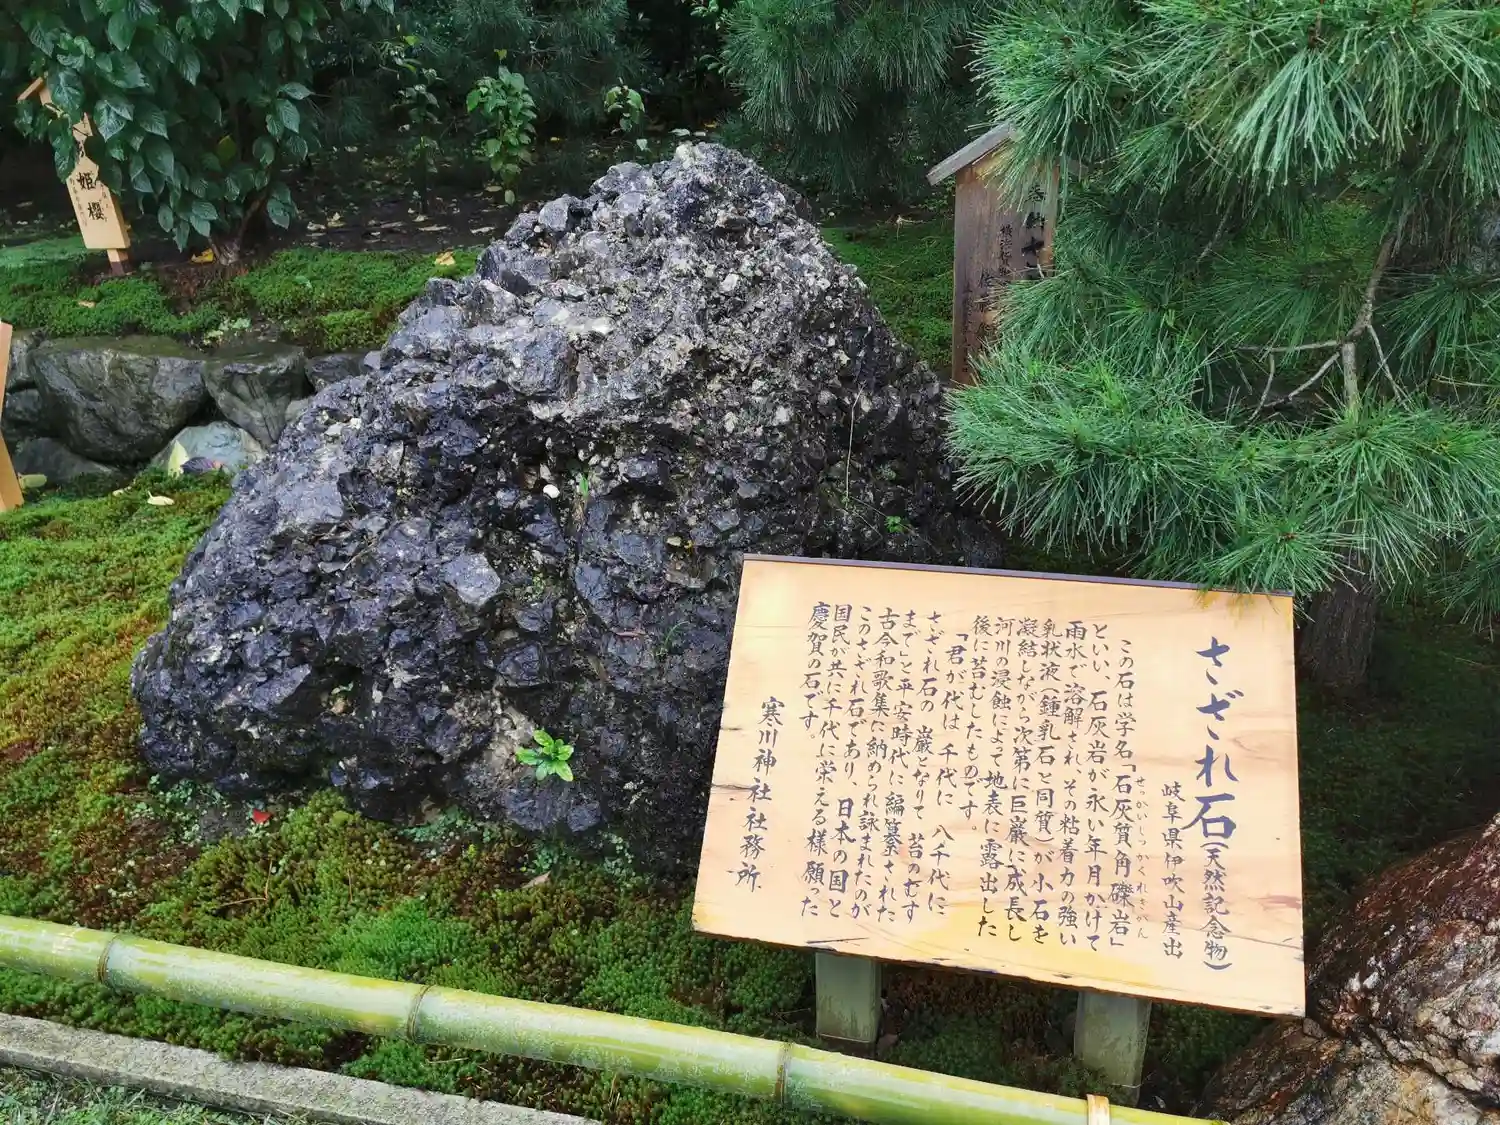 さざれ石(天然記念物)
岐阜県伊吹山産出
せっかいしつかくれきがん
この石は学名「石灰質角礫岩」
といい、石灰岩が永い年月かけて
雨水で溶解され、その粘着力の強い
乳状液(鍾乳石と同質)が小石を
凝結しながら次第に巨巌に成長し
河川の浸蝕によって地表に露出した
後に苔むしたものです。
「君が代は 千代に 八千代に
さざれ石の 巌となりて 苔のむす
まで」と平安時代に編纂された
古今和歌集に納められ詠まれたのが
このさざれ石であり、日本の国と
国民が共に千代に栄える様願った
慶賀の石です。
寒川神社社務所
姫櫻